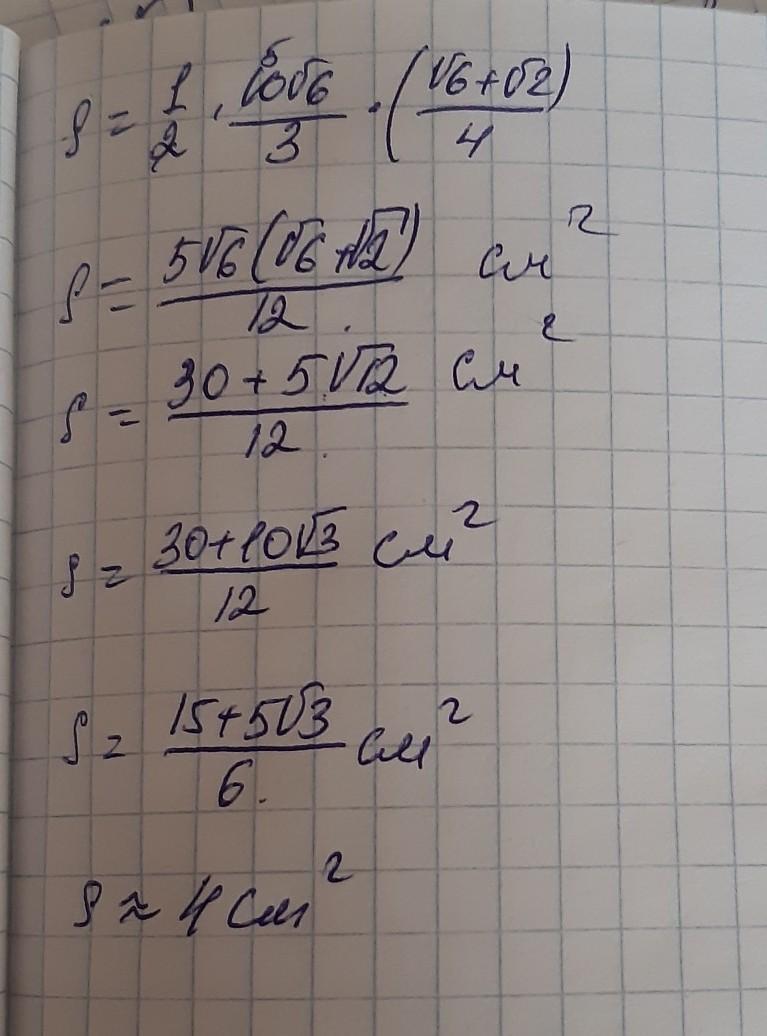 S = 1/2 · 10√6/3 · (√6+√2)/4
S = 5√6(√6+√2)/12 см²
S = 30+5√12/12 см²
S = 30+10√3/12 см²
S = 15+5√3/6 см²
S ≈ 4 см²